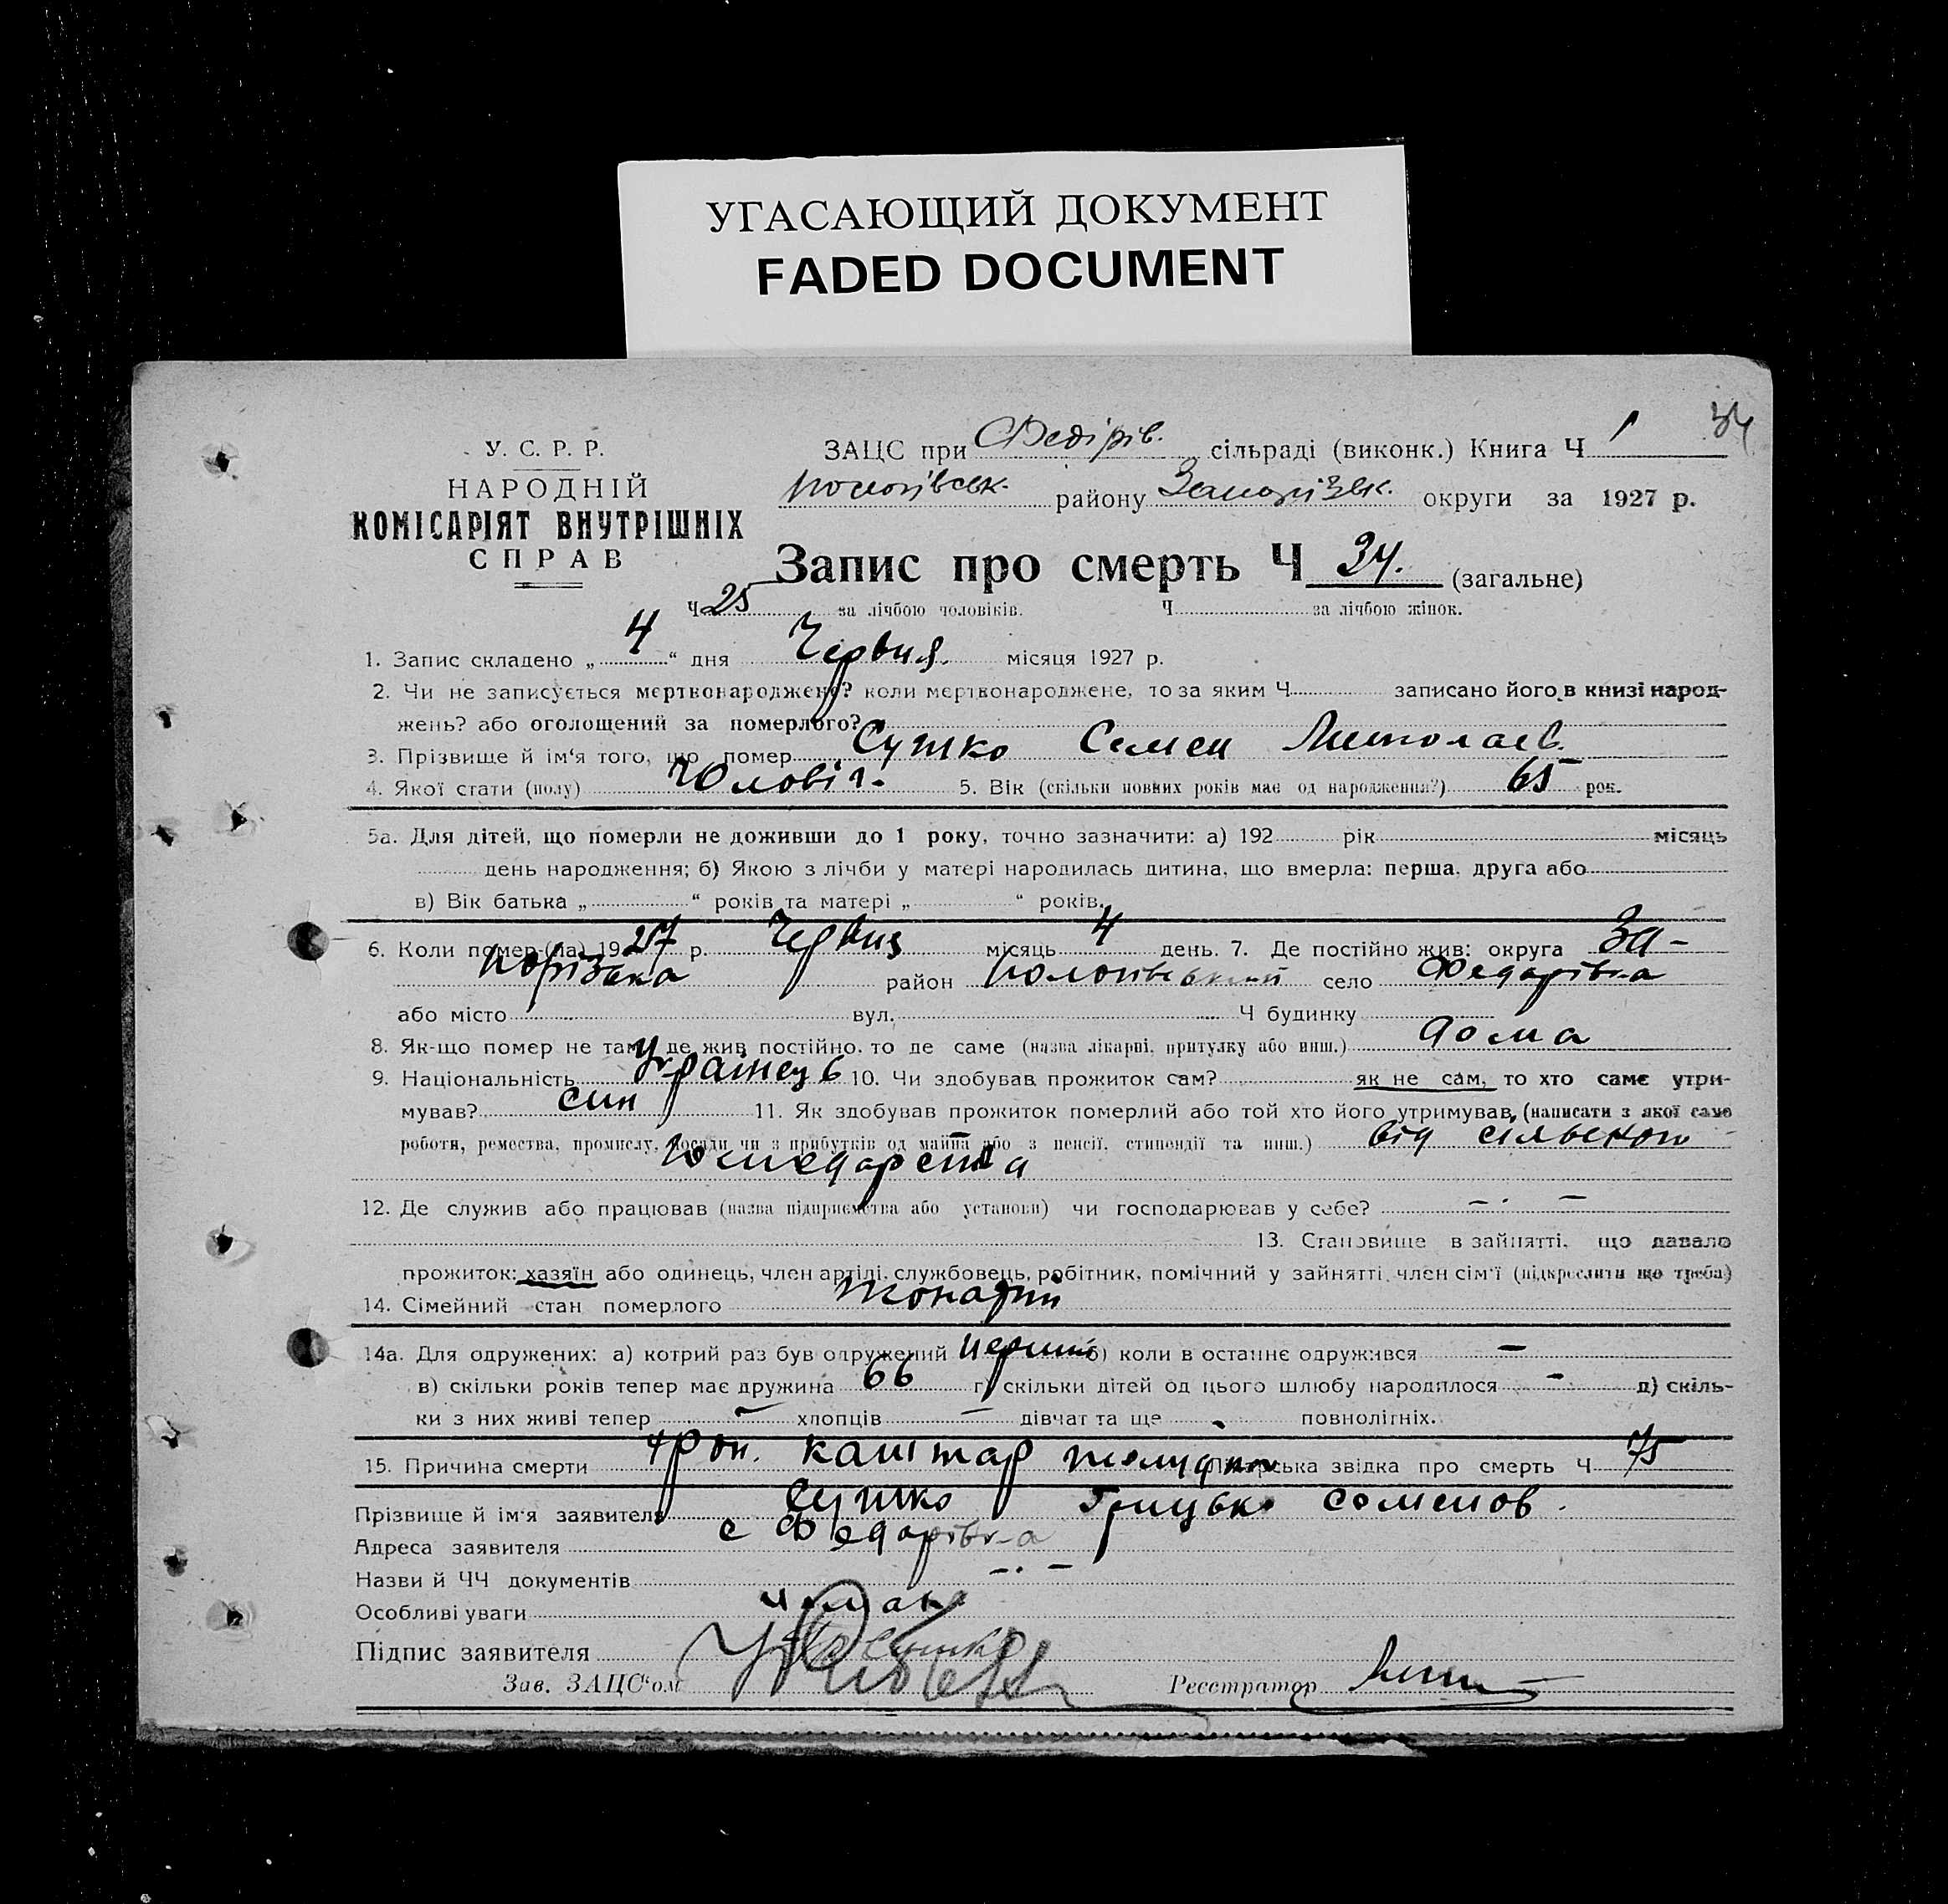 УГАСАЮЩИЙ ДОКУМЕНТ
FADED DOCUMENT
34
У. С. Р. Р.
НАРОДНІЙ
КОМІСАРІЯТ ВНУТРІШНІХ
СПРАВ
ЗАЦС при Федірів. сільраді (виконк.) Книга Ч 1
Пологівськ. району Запорізьк. округи за 1927 р.
Запис про смерть Ч 34. (загальне)
Ч 25 за лічбою чоловіків. Ч за лічбою жінок.
1. Запис складено „ 4 “ дня Червня місяця 1927 р.
2. Чи не записується мертвонароджене? коли мертвонароджене, то за яким Ч записано його в книзі народ-
жень? або оголошений за померлого?
3. Прізвище й ім‘я того, що помер Сушко Семен Миколаєв.
4. Якої стати (полу) Чоловіч. 5. Вік (скільки повних років має од народження?) 65 рок.
5а. Для дітей, що померли не доживши до 1 року, точно зазначити: а) 192 рік місяць
день народження; б) Якою з лічби у матері народилась дитина, що вмерла: перша, друга або
в) Вік батька „ “ років та матері „ “ років.
6. Коли помер (ла) 1927 р. Червня місяць 4 день. 7. Де постійно жив: округа За-
порізька район Пологівський село Федорівка
або місто вул. Ч будинку
8. Як-що помер не там, де жив постійно, то де саме (назва лікарні, притулку або инш.) дома
9. Національність Українець 10. Чи здобував прожиток сам? як не сам, то хто саме утри-
мував? син 11. Як здобував прожиток померлий або той хто його утримував, (написати з якої саме
роботи, ремества, промислу, посади чи з прибутків од майна або з пенсії, стипендії та инш.) від сільського
господарства
12. Де служив або працював (назва підприємства або установи) чи господарював у себе? - . -
13. Становище в зайнятті, що давало
прожиток: хазяїн або одинець, член артілі, службовець, робітник, помічний у зайнятті, член сім‘ї (підкреслити що треба)
14. Сімейний стан померлого жонатий
14а. Для одружених: а) котрий раз був одружений перший б) коли в останнє одружився -
в) скільки років тепер має дружина 66 г) скільки дітей од цього шлюбу народилося - д) скіль-
ки з них живі тепер - хлопців - дівчат та ще повнолітніх.
15. Причина смерти хрон. катар Лікарська звідка про смерть Ч 75
Прізвище й ім‘я заявителя Сушко Грицько Семенов.
Адреса заявителя с Федорівка
Назви й ЧЧ документів - . -
Особливі уваги
Підпис заявителя Сушко
Зав. ЗАЦС‘ом Реєстратор